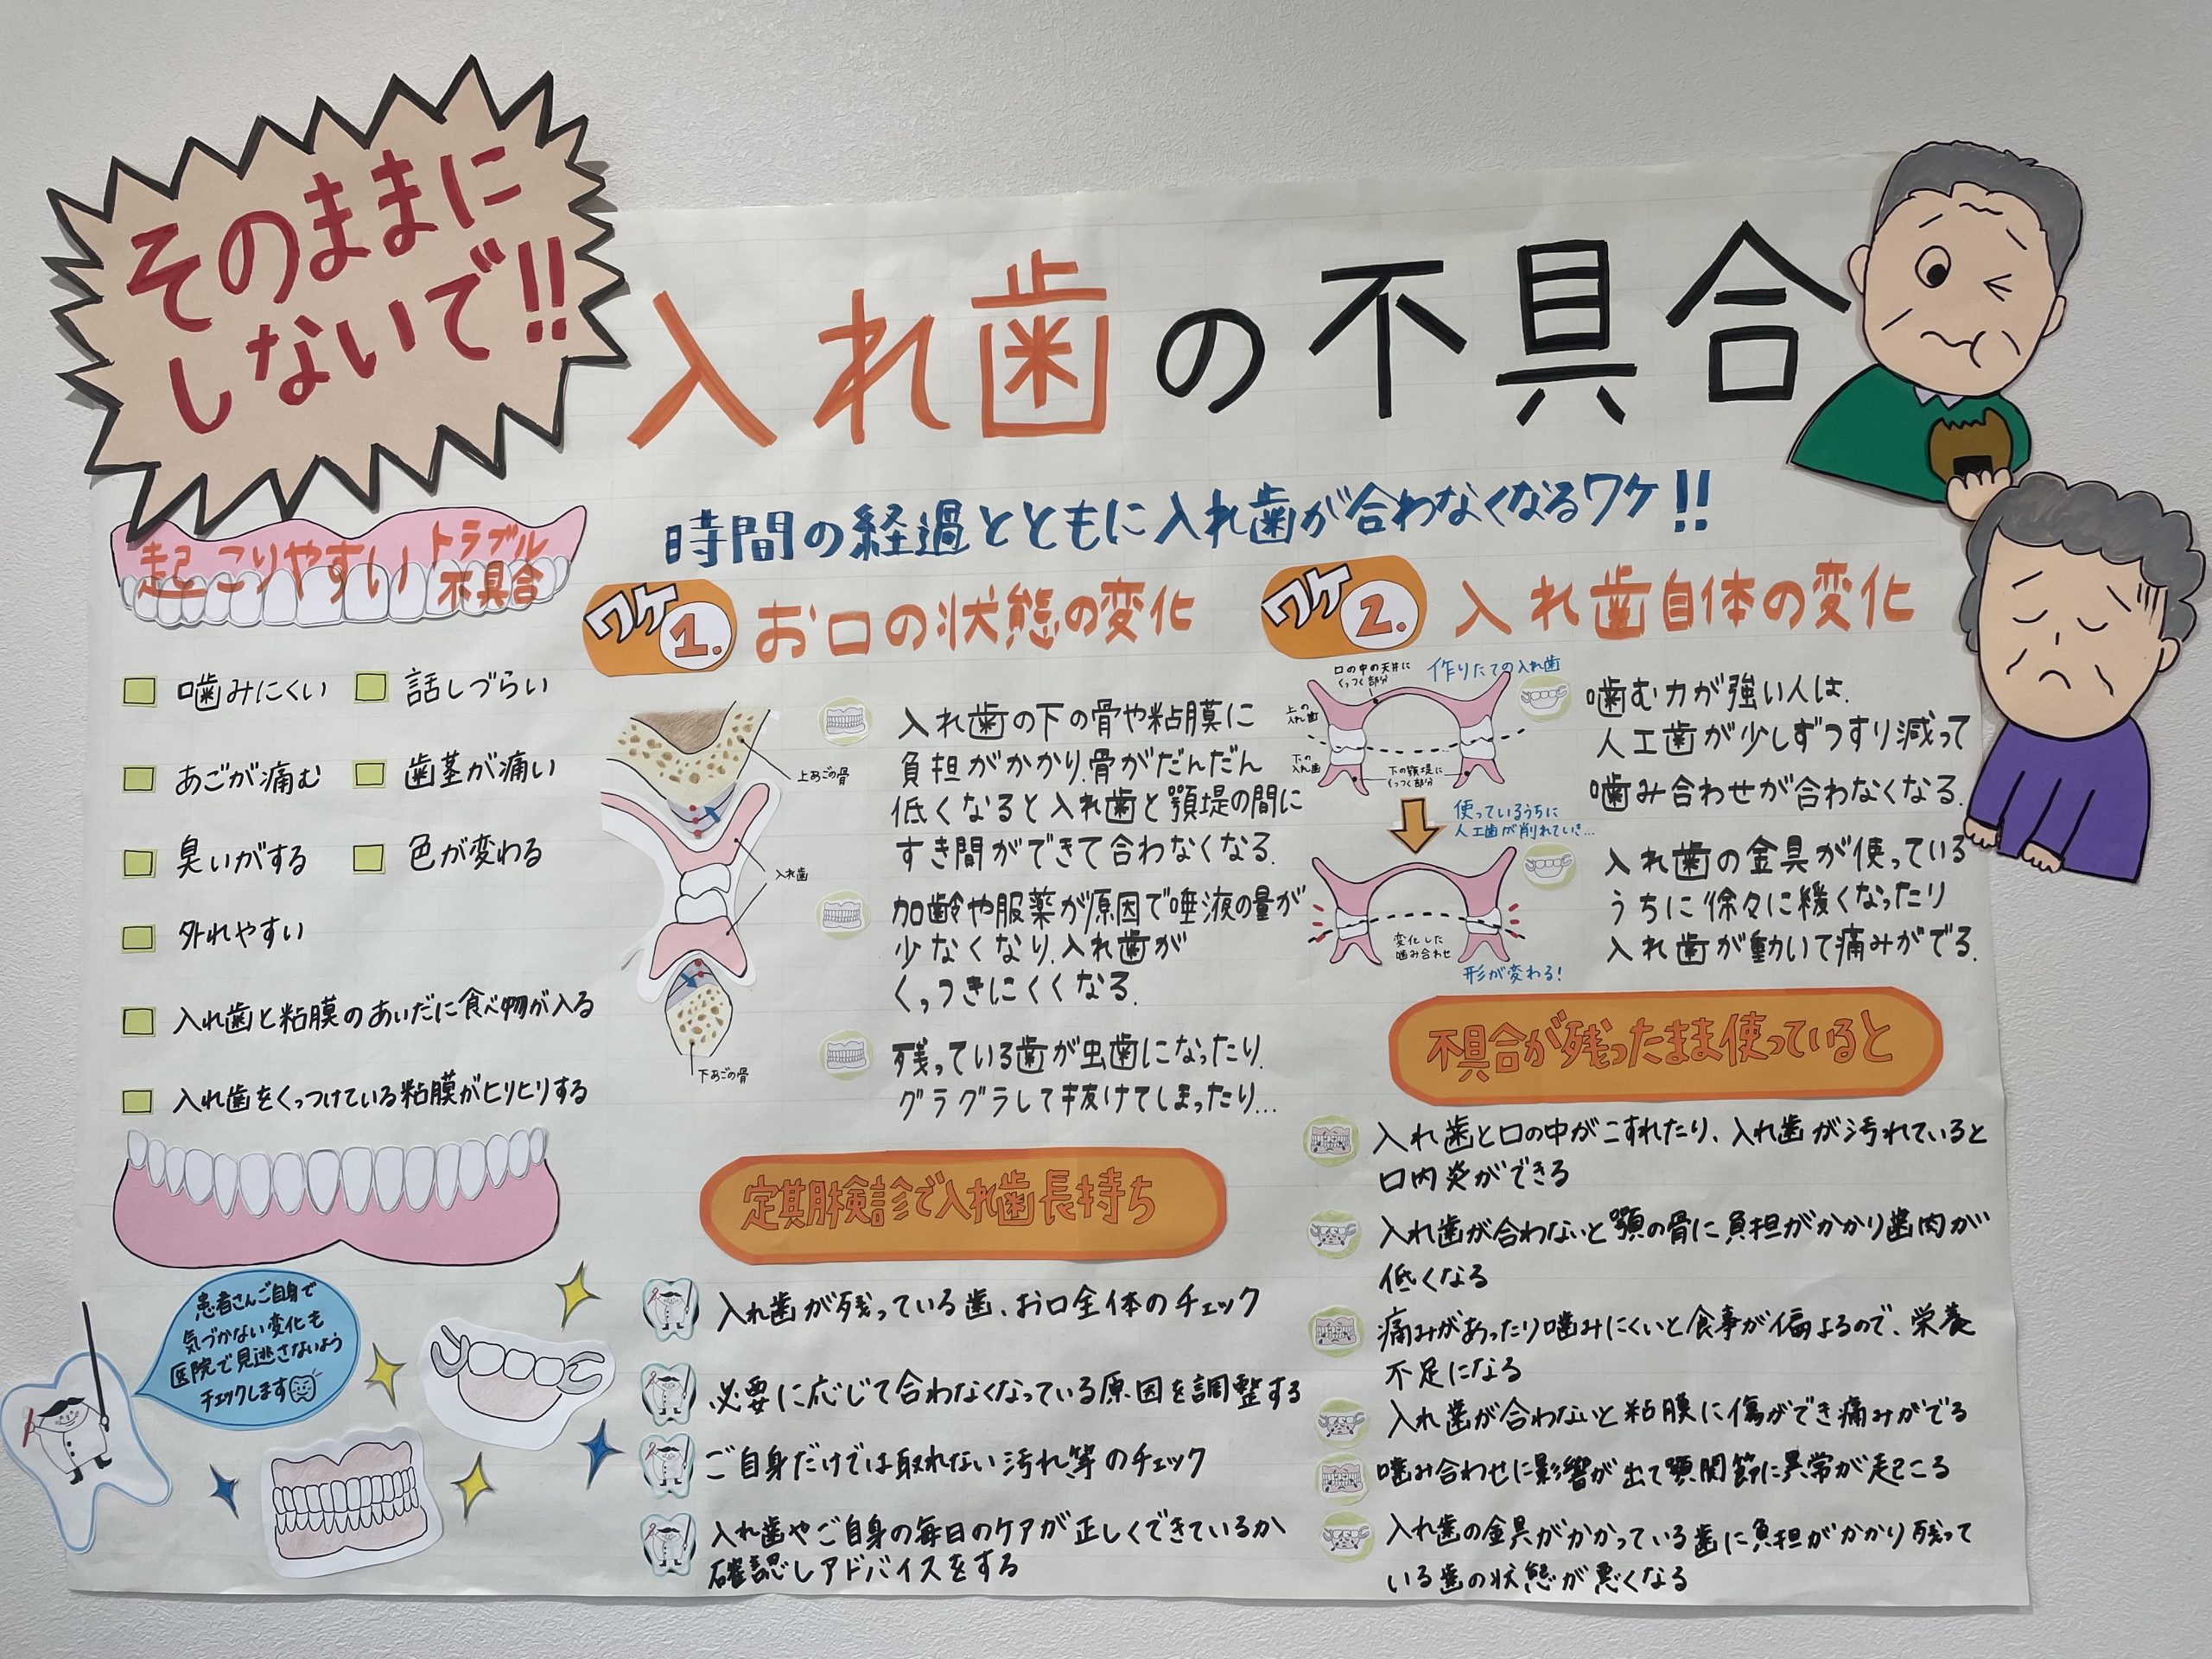 そのままに
しないで!!
入れ歯の不具合
時間の経過とともに入れ歯が合わなくなるワケ!!
起こりやすいトラブル
不具合
噛みにくい
話しづらい
あごが痛む
歯茎が痛い
臭いがする
色が変わる
外れやすい
入れ歯と粘膜のあいだに食べ物が入る
入れ歯をくっつけている粘膜がヒリヒリする
患者さんご自身で
気づかない変化も
医院で見逃さないよう
チェックします
ワケ1.
お口の状態の変化
上あごの骨
入れ歯
下あごの骨
入れ歯の下の骨や粘膜に
負担がかかり、骨がだんだん
低くなると入れ歯と顎堤の間に
すき間ができて合わなくなる。
加齢や服薬が原因で唾液の量が
少なくなり、入れ歯が
くっつきにくくなる。
残っている歯が虫歯になったり、
グラグラして抜けてしまったり…
定期検診で入れ歯長持ち
入れ歯が残っている歯、お口全体のチェック
必要に応じて合わなくなっている原因を調整する
ご自身だけでは取れない汚れ等のチェック
入れ歯やご自身の毎日のケアが正しくできているか
確認しアドバイスをする
ワケ2.
入れ歯自体の変化
口の中の天井に
くっつく部分
作りたての入れ歯
上の
入れ歯
下の
入れ歯
下の顎堤に
くっつく部分
使っているうちに
人工歯が削れていき…
変化した
噛み合わせ
形が変わる!
噛む力が強い人は、
人工歯が少しずつすり減って
噛み合わせが合わなくなる。
入れ歯の金具が使っている
うちに徐々に緩くなったり
入れ歯が動いて痛みがでる。
不具合が残ったまま使っていると
入れ歯と口の中がこすれたり、入れ歯が汚れていると
口内炎ができる
入れ歯が合わないと顎の骨に負担がかかり歯肉が
低くなる
痛みがあったり噛みにくいと食事が偏よるので、栄養
不足になる
入れ歯が合わないと粘膜に傷ができ痛みがでる
噛み合わせに影響が出て顎関節に異常が起こる
入れ歯の金具がかかっている歯に負担がかかり残って
いる歯の状態が悪くなる